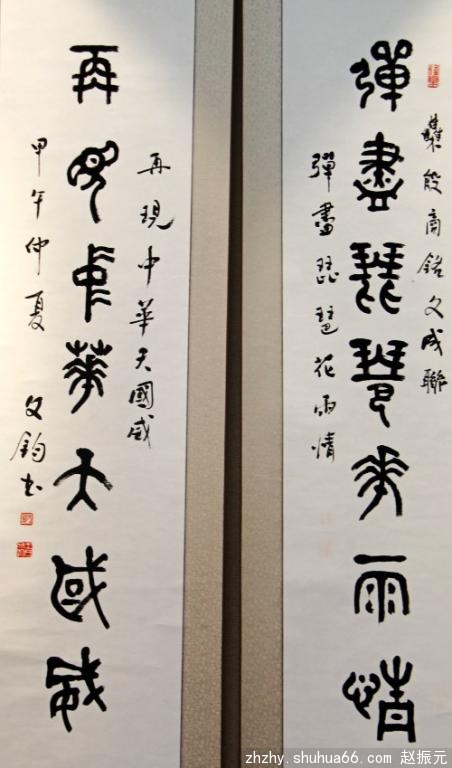 集殷商铭文成聯
彈盡琵琶花雨情
彈盡琵琶花雨情
再現中華天國威
再現中華天國威
甲午仲夏
文鈞书
zhzhy.shuhua66.com 赵振元